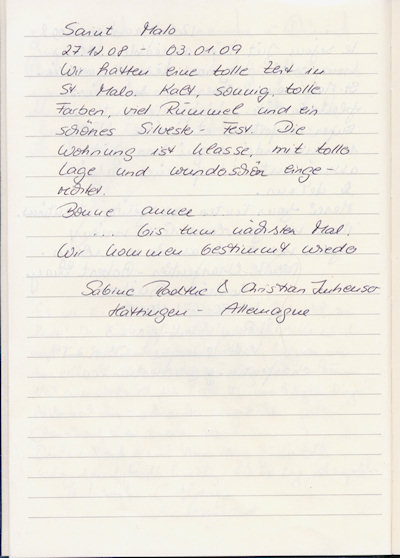 Saint Malo
27.12.08 - 03.01.09
Wir hatten eine tolle Zeit in
St Malo. Kalt, sonnig, tolle
Farben, viel Rummel und ein
schönes Silvester-Fest. Die
Wohnung ist klasse, mit tolle
Lage und wunderschön einge-
richtet.
Bonne année
... bis zum nächsten Mal.
Wir kommen bestimmt wieder
Sabine & Christian
Hattingen - Allemagne